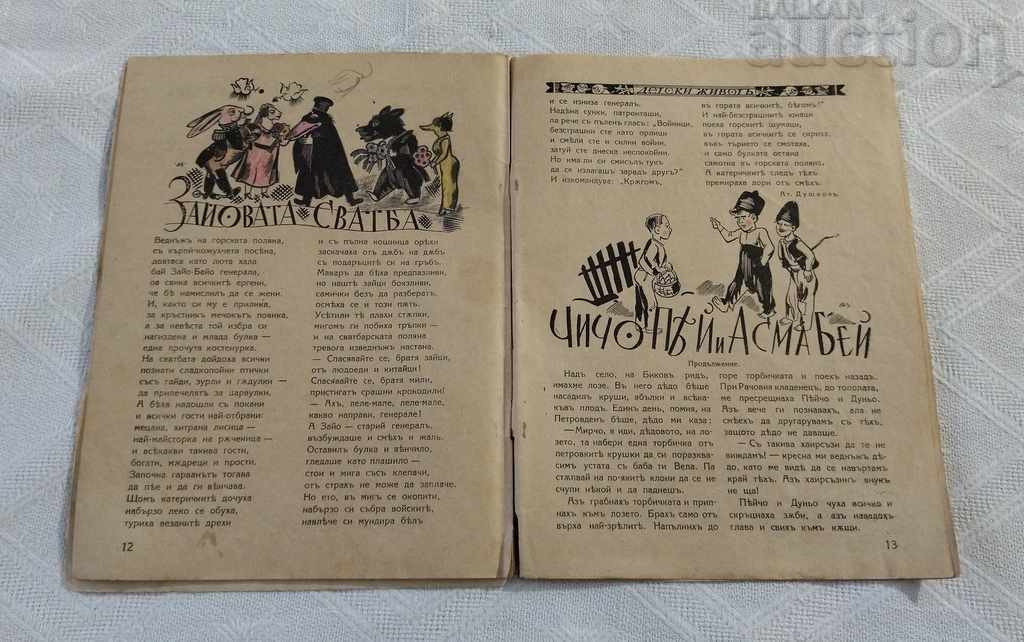 БАЛКАН
auction
ЗАЙОВАТА СВАТБА
Веднъжъ на горската поляна,
съ кърпи-кожухчета посѣна,
довтаса като люта хала
бай Зайо-Байо генерала,
та свика всичките ергени,
че бѣ намислилъ да се жени.
И, както си му е прилика,
за кръстникъ мечокътъ повика,
а за невѣста той избра си
нагиздена и млада булка —
една прочута костенурка.
На сватбата дойдоха всички
познати сладкопойни птички
съсъ гайди, зурли и гѫдулки —
да припечелятъ за цървулки.
А бѣха надошли съ покани
и всички гости най-отбрани:
мецана, хитрана лисица —
най-майсторка на рѫченица —
и всѣкакви такива гости,
богати, мѫдреци и прости.
Започна гарванътъ тогава
да пѣе и да ги вѣнчава.
Щомъ катеричкитѣ дочуха
набързо леко се обуха,
туриха везанитѣ дрехи
12
и съ пълна кошница орѣхи
заскачаха отъ дѫбъ на дѫбъ
съ подаръцитѣ си на гръбъ.
Макаръ да бѣха предпазливи,
но нашитѣ зайци боязливи,
самички безъ да разбератъ,
осмѣха се и този пътъ.
Усѣтили тѣ плахи стѫпки,
мигомъ ги побиха тръпки —
и на сватбарската поляна
тревога изведнъжъ настана.
— Спасявайте се, братя зайци,
отъ людоеди и китайци!
Спасявайте се, братя мили,
пристигатъ срашни крокодили!
— Ахъ, леле-мале, леле-мале,
какво направи, генерале!
А Зайо — старий генералъ,
възбуждаше и смѣхъ и жаль.
Оставилъ булка и вѣнчило,
гледаше като плашило —
стои и мига съсъ клепачи,
отъ страхъ не може да заплаче.
Но ето, въ мигъ се окопити,
набързо си събра войскитѣ,
навлѣче си мундира бѣлъ
ДЕТСКИ ЖИВОТЪ
и се изниза генералъ.
Надѣна сумки, патронташи,
па рече съ пъленъ гласъ: „Войници,
безстрашни сте като орлици
и смѣли сте и силни войни,
затуй сте днеска неспокойни.
Но има ли си смисълъ тукъ
да се излагашъ зарадъ другъ?"
И изкомандува: „Крѫгомъ,
въ гората всичкитѣ, бѣгомъ!"
И най-безстрашнитѣ юнаци
поеха горските шумаци,
въ гората всичките се скриха,
въвъ търнето се смотаха,
и само булката остана
самотна въ горската поляна.
А катеричките следъ тѣхъ
премираха дори отъ смѣхъ.
Ат. Душковъ
ЧИЧО ПѢЙ И АСМАБЕЙ
Продължение.
Надъ село, на Биковъ ридъ,
имахме лозе. Въ него дѣдо бѣше
насадилъ круши, ябълки и всѣка-
къвъ плодъ. Единъ день, помня, на
Петровденъ бѣше, дѣдо ми каза:
—Мирчо, я иди, дѣдовото, на ло-
зето, та набери една торбичка отъ
петровкитѣ крушки да си поразква-
симъ устата съ баба ти Вела. Па
стѫпвай на по-яките клони да се не
счупи нѣкой и да паднешъ.
Азъ грабнахъ торбичката и прип-
нахъ къмъ лозето. Брахъ само отъ
върха най-зрѣлитѣ. Напълнихъ до
горе торбичката и поехъ назадъ.
При Рачовия кладенецъ, до тополата,
ме пресрещнаха Пѣйчо и Дуньо.
Азъ вече ги познавахъ, ала не
смѣехъ да другарувамъ съ тѣхъ,
защото дѣдо не даваше.
— Съ такива хаирсъзи да те не
виждамъ! — кресна ми веднъжъ дѣ-
до, като ме видѣ да се навъртамъ
край тѣхъ. Азъ хаирсъзинъ внукъ
не ща!
Пѣйчо и Дуньо чуха всичко и
скръцнаха зѫби, а азъ наведохъ
глава и свихъ къмъ кѫщи.
13